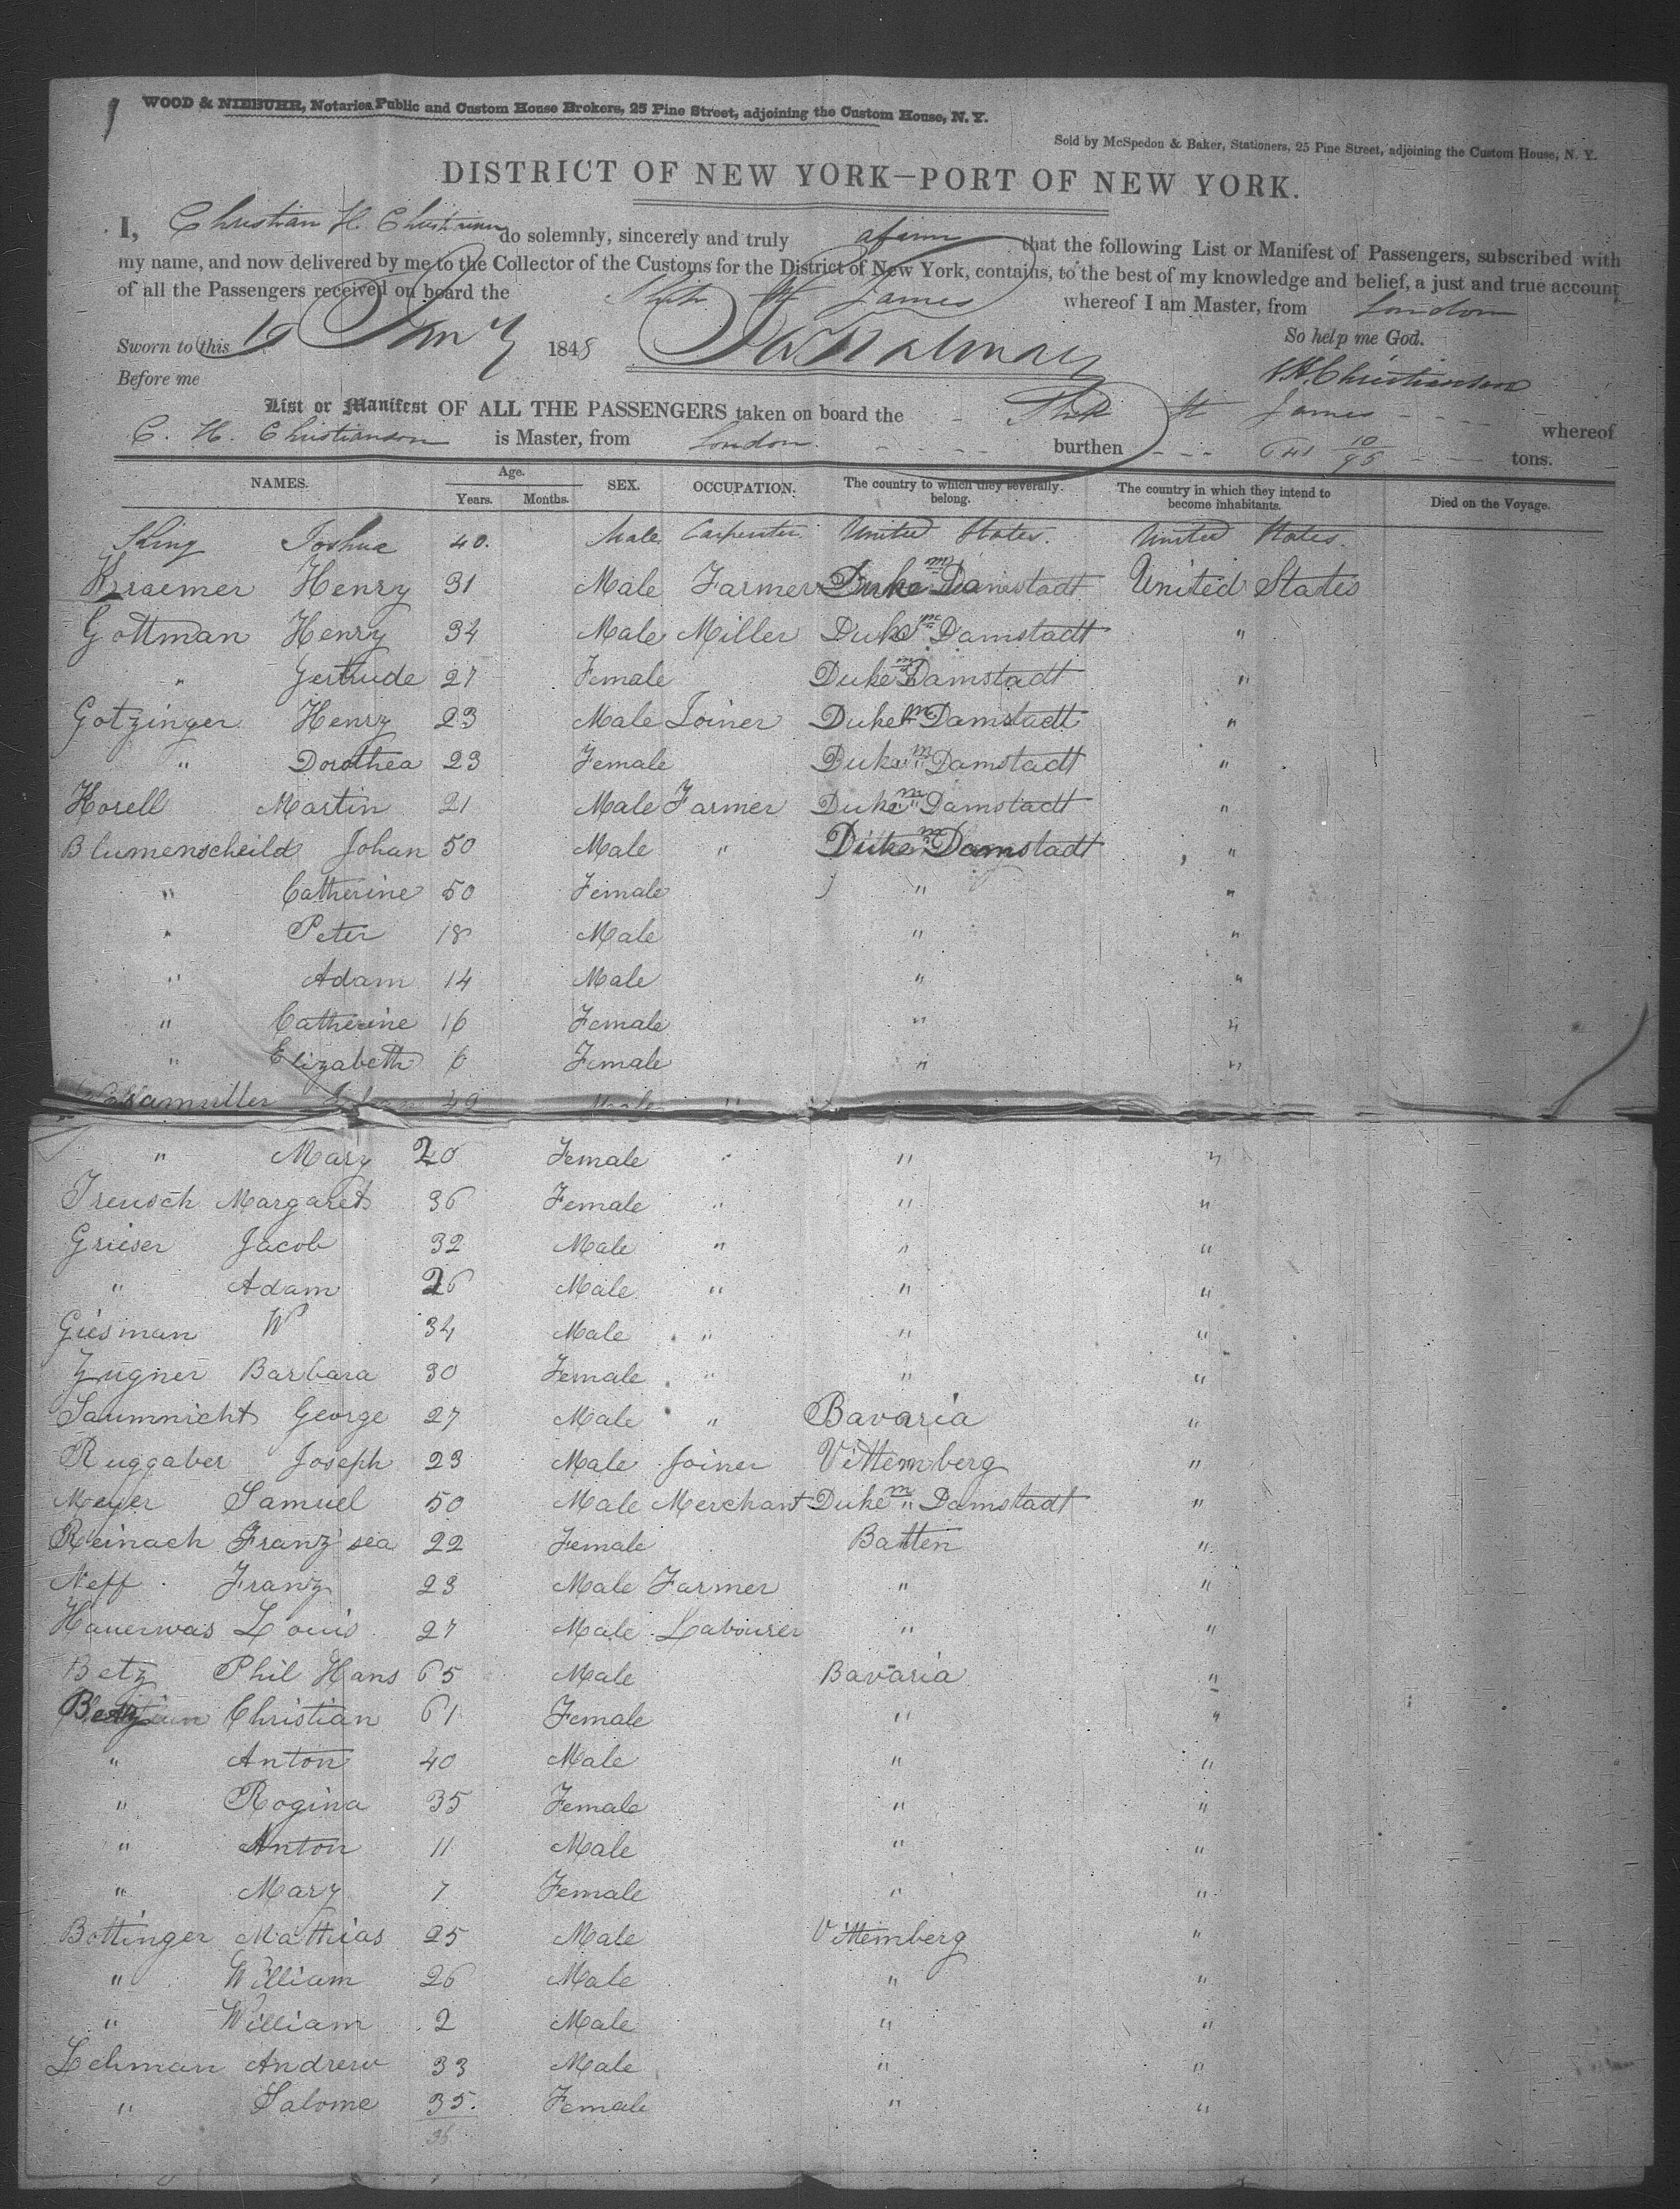 WOOD & NIEBUHR, Notaries Public and Custom House Brokers, 25 Pine Street, adjoining the Custom House, N. Y.
Sold by McSpedon & Baker, Stationers, 25 Pine Street, adjoining the Custom House, N. Y.
DISTRICT OF NEW YORK—PORT OF NEW YORK.
I, Christian H. Christianson do solemnly, sincerely and truly afirm that the following List or Manifest of Passengers, subscribed with
my name, and now delivered by me to the Collector of the Customs for the District of New York, contains, to the best of my knowledge and belief, a just and true account
of all the Passengers received on board the Ship St James whereof I am Master, from London
So help me God.
Sworn to this 10 Jany 1848
C. H. Christianson
Before me
List or Manifest OF ALL THE PASSENGERS taken on board the Ship St James whereof
C. H. Christianson is Master, from London burthen 10/95 tons.
NAMES. Age. Years. Months. SEX. OCCUPATION. The country to which they severally belong. The country in which they intend to become inhabitants. Died on the Voyage.
King Joshua 40. Male Carpenter United States. United States.
Kraemer Henry 31 Male Farmer Dukem Damstadt United States
Gottman Henry 34 Male Miller Dukem Damstadt "
" Gertrude 27 Female Dukem Damstadt "
Gotzinger Henry 23 Male Joiner Dukem Damstadt "
" Dorothea 23 Female Dukem Damstadt "
Horell Martin 21 Male Farmer Dukem Damstadt "
Blumenscheild Johan 50 Male " Dukem Damstadt "
" Catherine 50 Female " "
" Peter 18 Male " "
" Adam 14 Male " "
" Catherine 16 Female " "
" Elizabeth 6 Female " "
49 Male "
" Mary 20 Female " " "
Treusch Margaret 36 Female " " "
Grieser Jacob 32 Male " " "
" Adam 26 Male " " "
Giesman W 34 Male " " "
Zugner Barbara 30 Female " " "
Saumnicht George 27 Male " Bavaria "
Ruggaber Joseph 23 Male Joiner Vittemberg "
Meyer Samuel 50 Male Merchant Dukem " Damstadt "
Reinach Franz sea 22 Female Batten "
Neff Franz 23 Male Farmer " "
Hauerwas Louis 27 Male Labourer " "
Betz Phil Hans 65 Male Bavaria "
Betz Christian 61 Female " "
" Anton 40 Male " "
" Rogina 35 Female " "
" Anton 11 Male " "
" Mary 7 Female " "
Bottinger Mathias 25 Male Vittemberg "
" William 26 Male " "
" William 2 Male " "
Lehman Andrew 33 Male " "
" Salome 35. Female " "
36